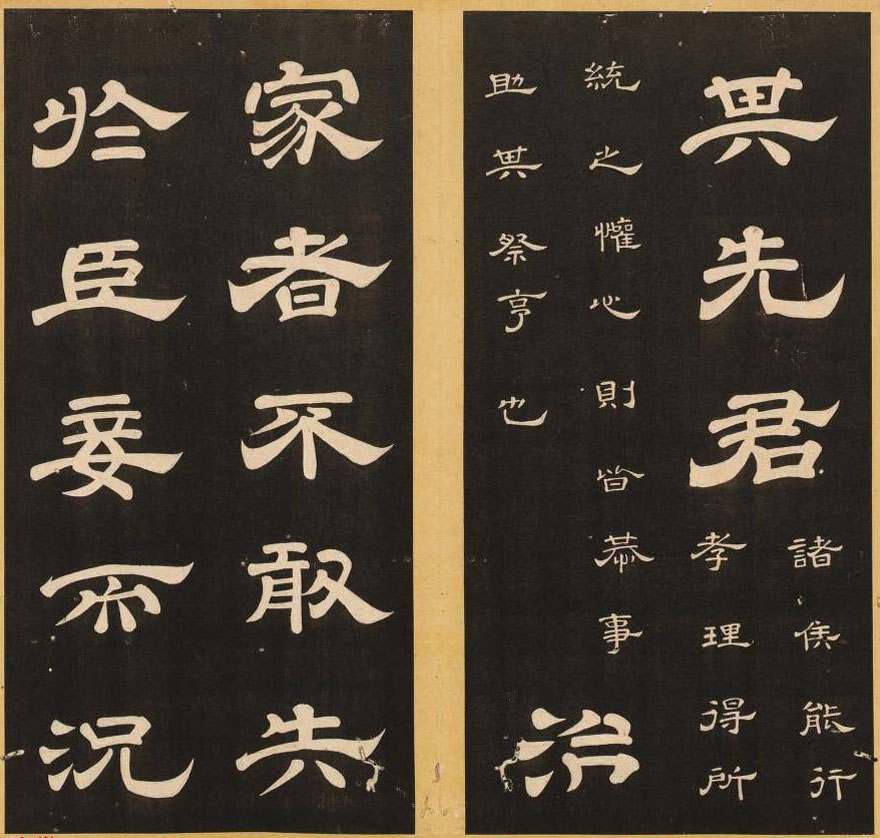 其先君
諸侯能行
孝理得所
統之懽心則皆恭事
助其祭亨也
治
家者不敢失
於臣妾而況